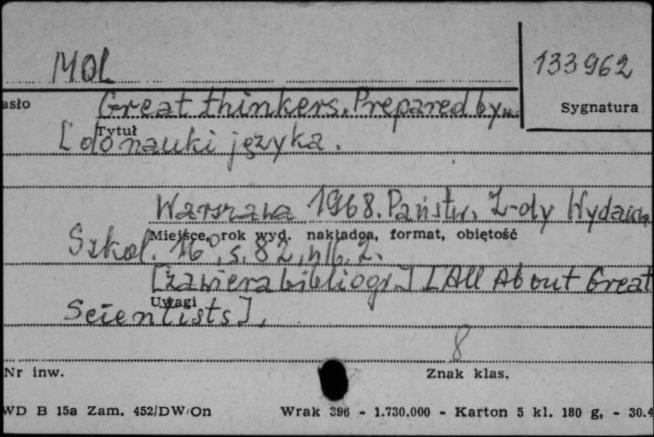 MOL
133962
asło
Great thinkers. Prepared by...
Sygnatura
Tytuł
[do nauki języka.
Warszawa 1968. Państw. Z-dy Wydawn.
Miejsce, rok wyd. nakładca, format, objętość
Szkol. 16°, s. 82, nlb. 2.
[zawiera bibliogr.] [All About Great
Uwagi
Scientists].
8
Nr inw.
Znak klas.
WD B 15a Zam. 452/DW/On Wrak 396 - 1.730.000 - Karton 5 kl. 180 g, - 30.4